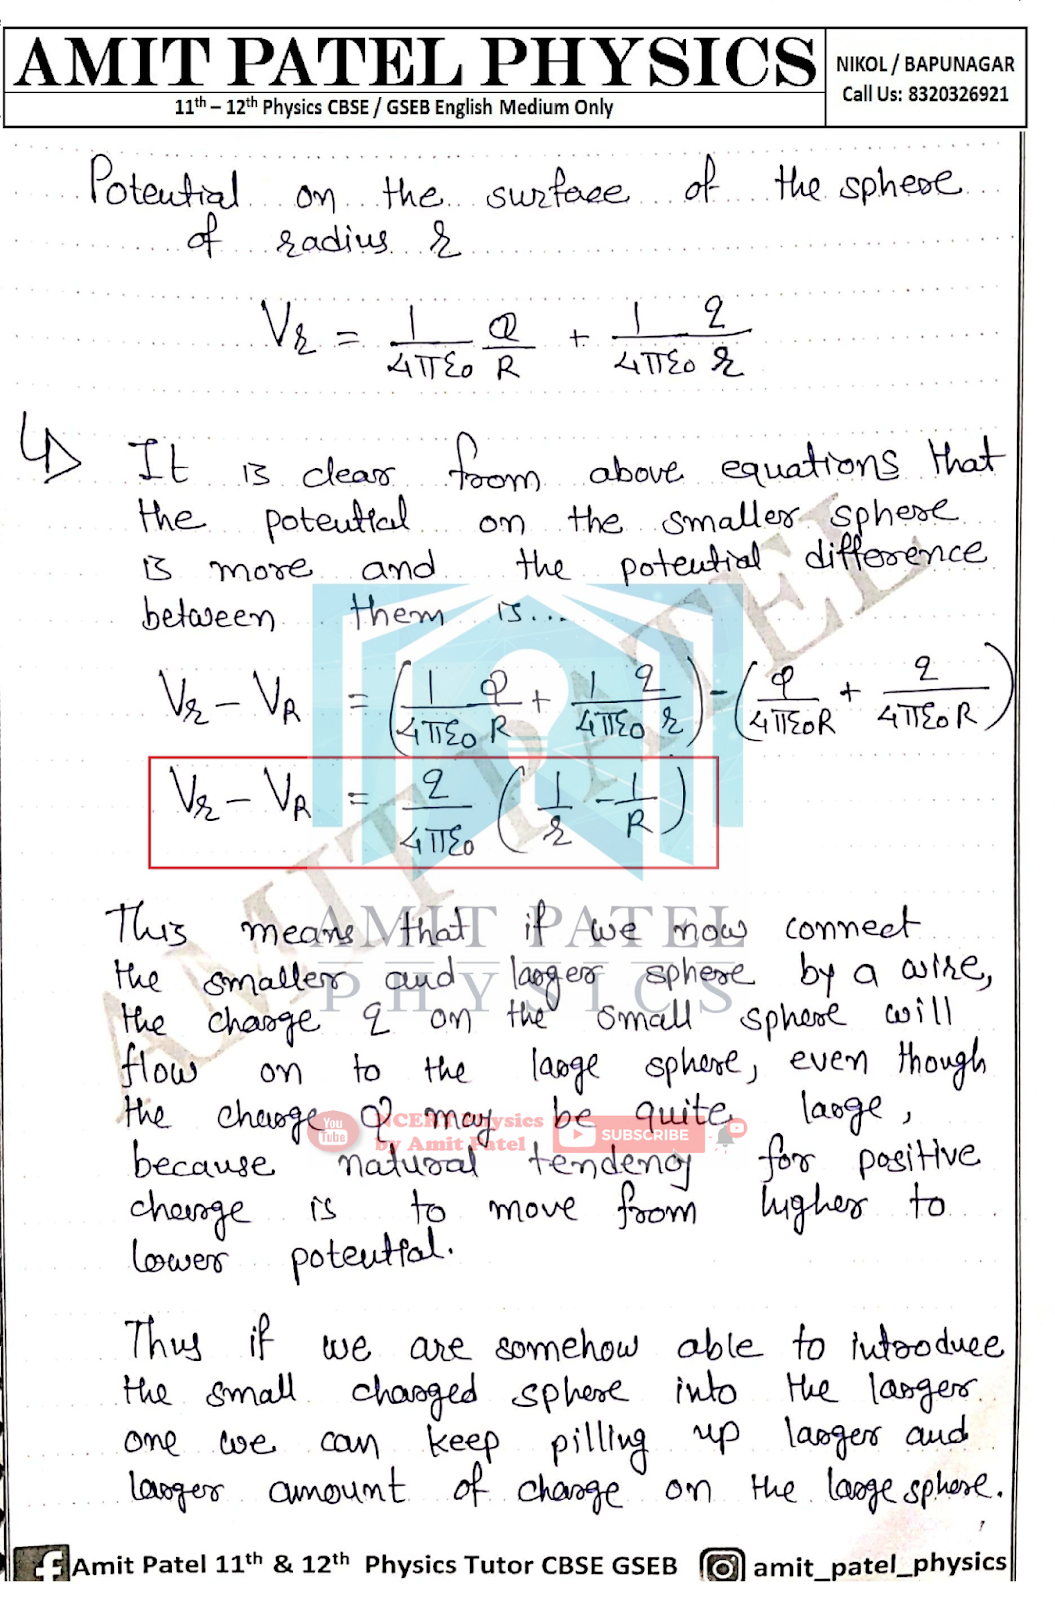 AMIT PATEL PHYSICS
11th – 12th Physics CBSE / GSEB English Medium Only
NIKOL / BAPUNAGAR
Call Us: 8320326921
Potential on the surface of the sphere
of radius r
Vr = 1/4πε0 Q/R + 1/4πε0 q/r
↳ It is clear from above equations that
the potential on the smaller sphere
is more and the potential difference
between them is...
Vr – VR = (1/4πε0 Q/R + 1/4πε0 q/r) – (Q/4πε0R + q/4πε0R)
Vr – VR = q/4πε0 (1/r – 1/R)
This means that if we now connect
the smaller and larger sphere by a wire,
the charge q on the small sphere will
flow on to the large sphere, even though
the charge Q may be quite large,
because natural tendency for positive
charge is to move from higher to
lower potential.
Thus if we are somehow able to introduce
the small charged sphere into the larger
one we can keep pilling up larger and
larger amount of charge on the large sphere.
AMIT PATEL
AMIT PATEL
PHYSICS
You Tube
NCERT Physics
by Amit Patel
SUBSCRIBE
Amit Patel 11th & 12th Physics Tutor CBSE GSEB
amit_patel_physics